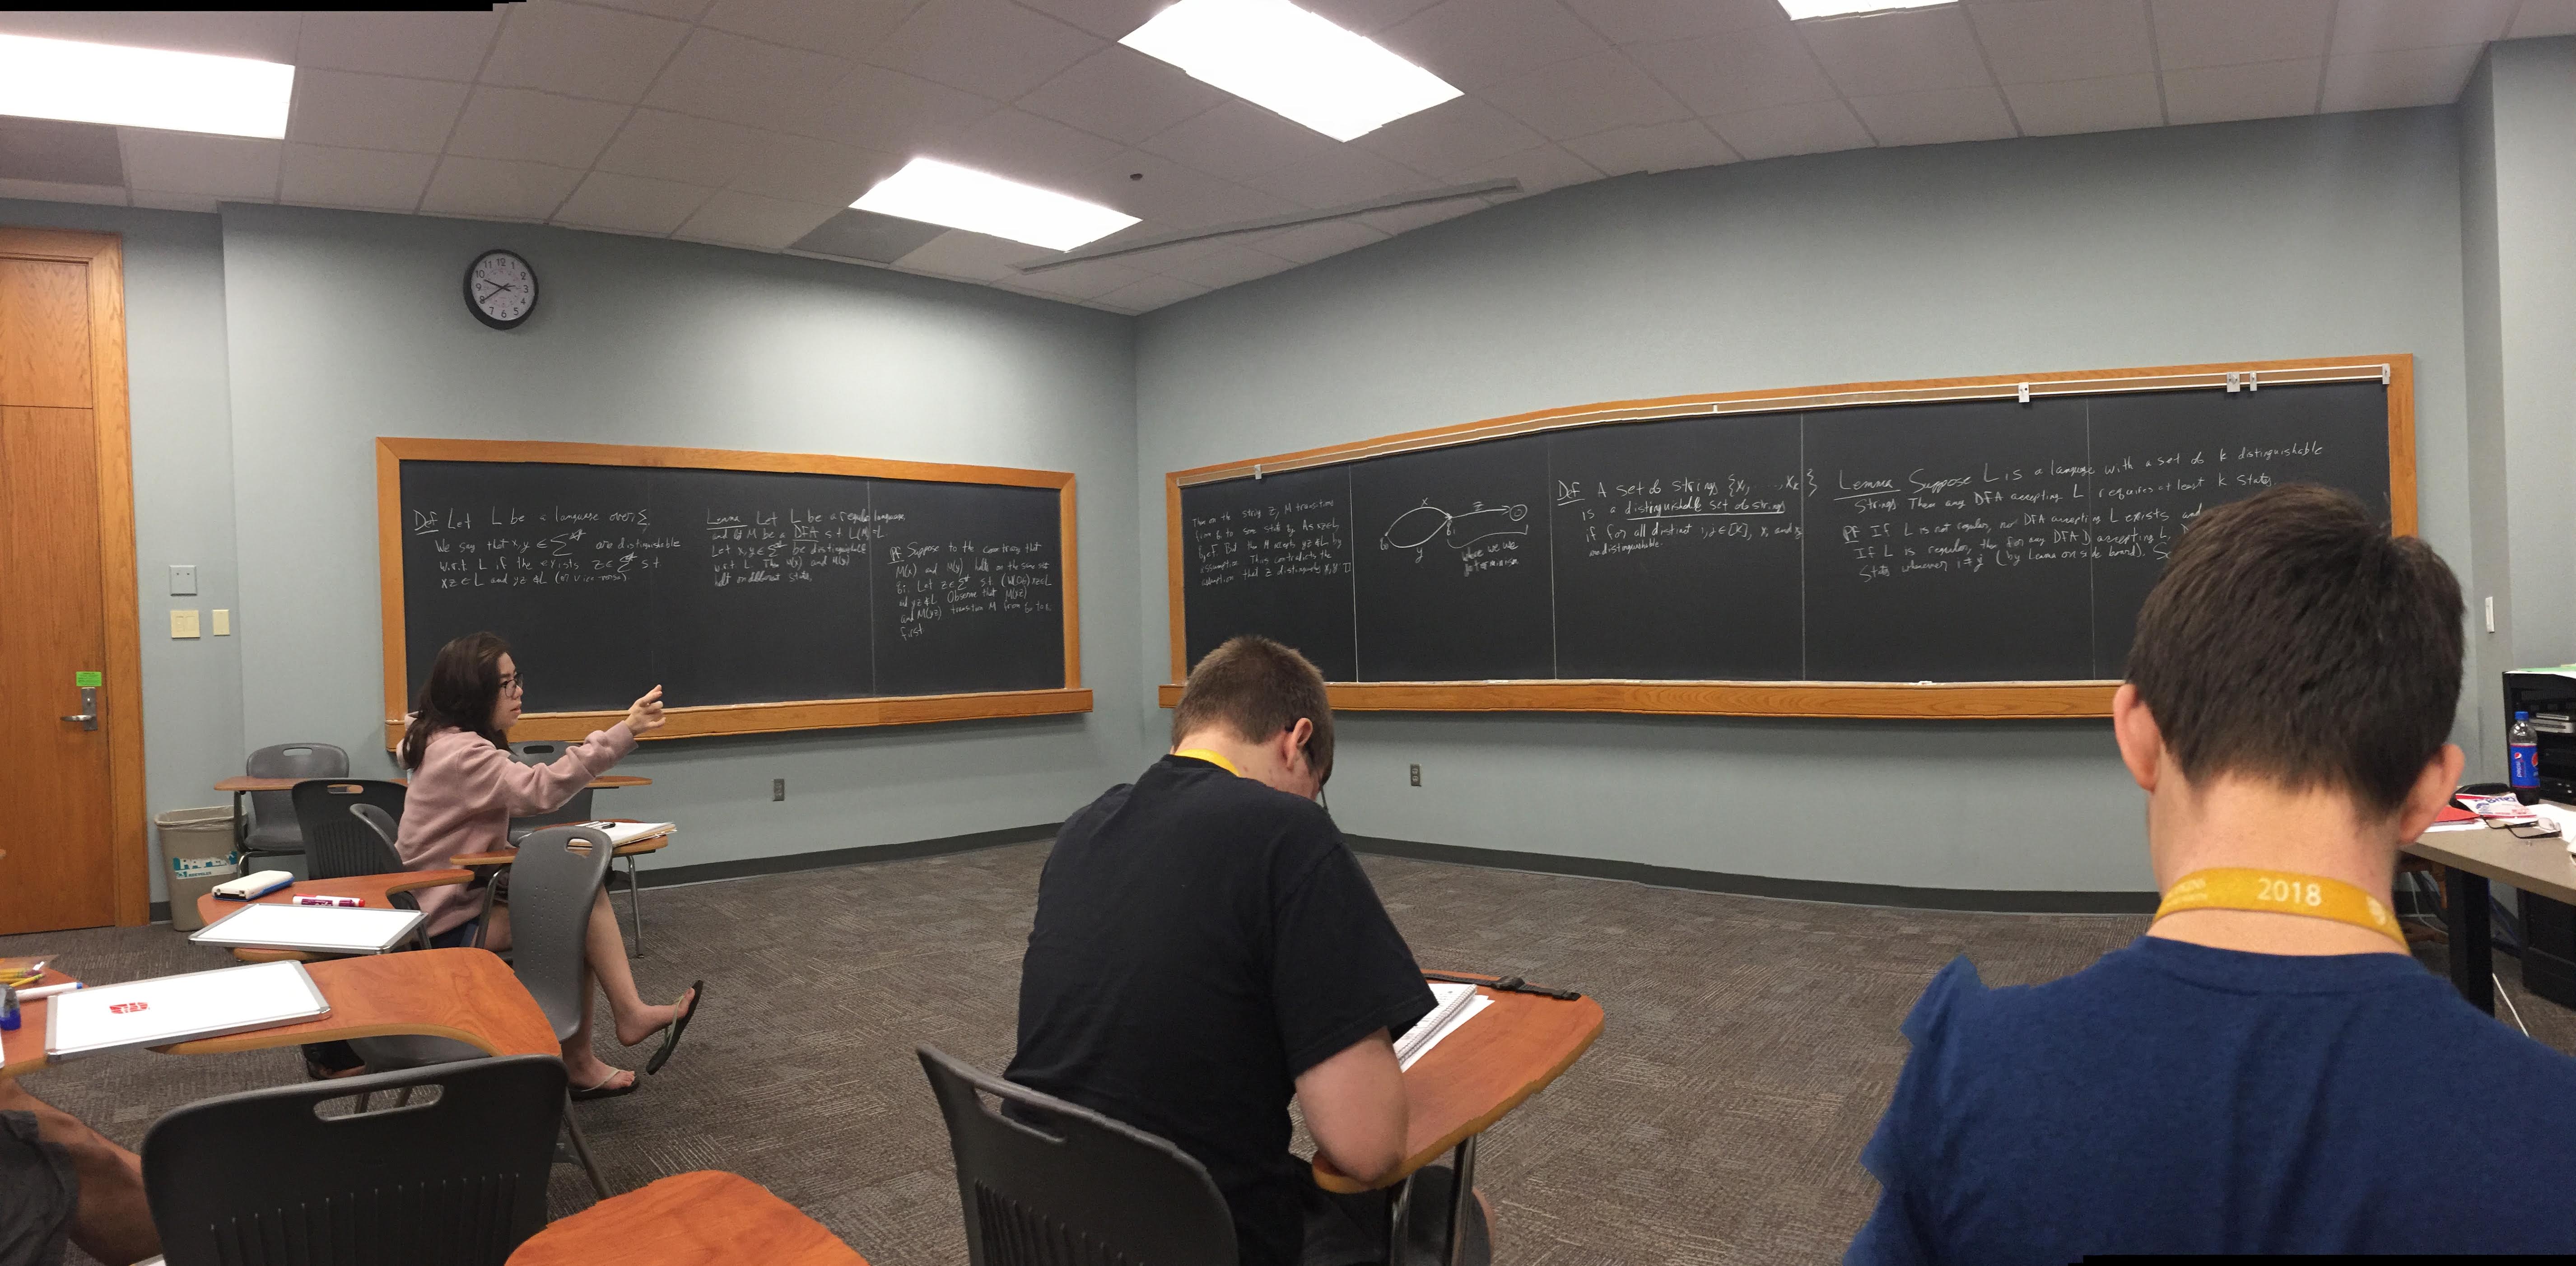 11 12 1
10 2
9 3
8 4
7 6 5
Def Let L be a language over Σ.
We say that x,y ∈ Σ* are distinguishable
w.r.t L if the exists z ∈ Σ* s.t
xz ∈ L and yz ∉ L (or vice-versa)
Lemma Let L be a regular language,
and let M be a DFA s.t L(M)=L.
Let x,y ∈ Σ* be distinguishable
w.r.t L. Then M(x) and M(y)
halt on different states.
Pf Suppose to the contrary that
M(x) and M(y) halt on the same state
qi. Let z ∈ Σ* s.t (WLOG) xz ∈ L
and yz ∉ L Observe that M(xz)
and M(yz) transition M from q0 to qi
first
Then on the string z, M transitions
from qi to some state qj. As xz ∈ L,
qj ∈ F. But then M accepts yz ∉ L by
assumption. This contradicts the
assumption that z distinguishes x,y □
x
z
q0
qi
y
where we we
Def A set of strings {x, ..., xk}
is a distinguishable set of strings
if for all distinct i,j ∈ [k], xi and xj
are distinguishable.
Lemma Suppose L is a language with a set of k distinguishable
strings Then any DFA accepting L requires at least k states.
Pf If L is not regular, no DFA accepting L exists and
If L is regular, the for any DFA D accepting L,
states whenever i≠j (by Lemma on side board).
2018
pepsi